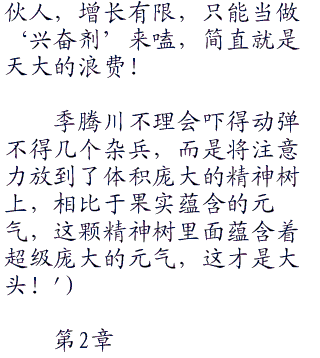 伙人，增长有限，只能当做
‘兴奋剂’来嗑，简直就是
天大的浪费！
季腾川不理会吓得动弹
不得几个杂兵，而是将注意
力放到了体积庞大的精神树
上，相比于果实蕴含的元
气，这颗精神树里面蕴含着
超级庞大的元气，这才是大
头！')
第2章